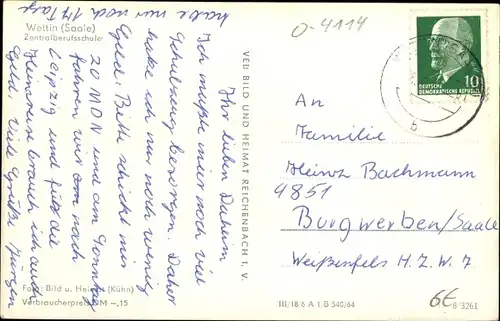 Wettin (Saale)
Zentralberufsschule
habe nur noch 14 Tage
Ihr lieben Daheim
Ich mußte mir noch viel
Schulzeug besorgen. Daher
habe ich nur noch wenig
Geld. Bitte schickt mir
20 MDN und am Sonntag
fahren wir nach
Leipzig und für die
Heimreise brauch ich auch
Geld. Viele Grüße Jürgen
Foto: Bild u. Heimat (Kühn)
Verbraucherpreis DM -,15
VEB BILD UND HEIMAT REICHENBACH I. V.
III/18/6 A 1 B 540/64
O-4114
DEUTSCHE
DEMOKRATISCHE REPUBLIK
10
b
An
Familie
Heinz Bachmann
4851
Burgwerben/Saale
Weißenfels H.Z.W. 7
6€
8/3261